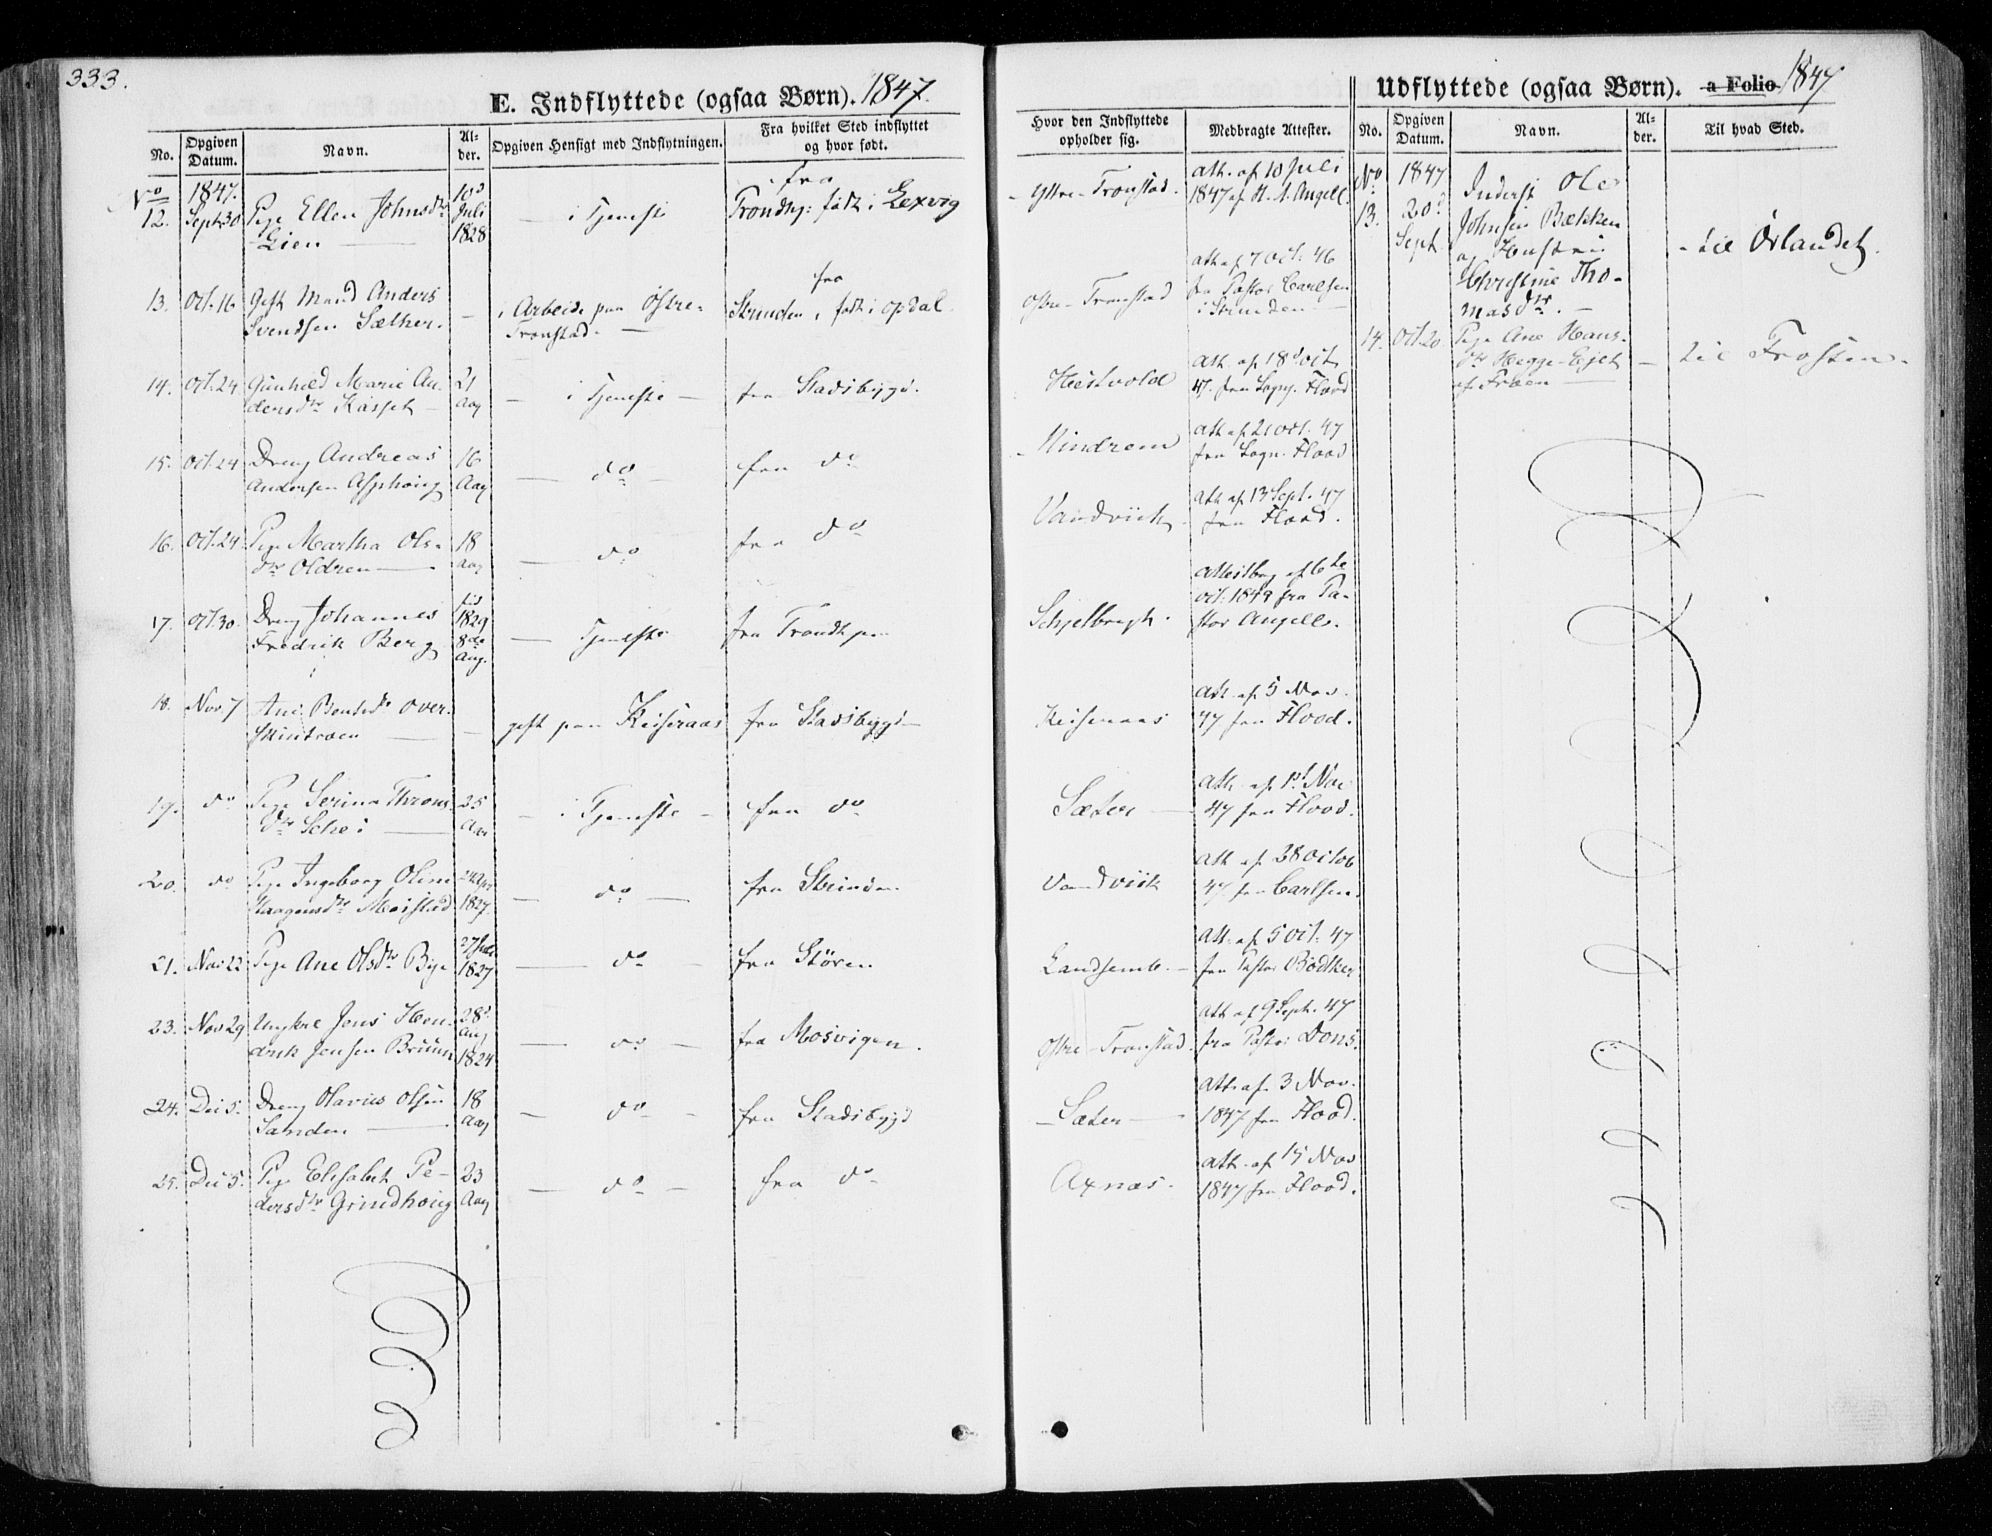 333.
E. Indflyttede (ogsaa Børn). 1847.
No.
Opgiven Datum.
Navn.
Al-
der.
Opgiven Hensigt med Indflytningen.
Fra hvilket Sted indflyttet
og hvor født.
No 1847.
12. Sept 30 Pige Ellen Johnsdtr 10d Juli 1828 — i Tjeneste fra Trondhj: født i Lexvig
13. Oct. 16 Gift Mand Anders
Svendsen Sæther. — i Arbeide paa Østre-
Tronstad. — fra Strinden, født i Opdal
14. Oct. 24 Gunhild Marie An-
dersdtr Kasset — 21 Aar — i Tjeneste — fra Stadsbygd.
15. Oct. 24 Dreng Andreas
Andersen Asphoug 16 Aar — do — fra do
16. Oct. 24 Pige Martha Ols-
dtr Oldren — 18 Aar — do fra do
17. Oct. 30 Dreng Johannes
Fredrik Berg 1829 8de Aug. — Tjeneste fra Trondhjem
18. Nov. 7 Ane Bentsdtr Over-
— gift paa Keiseraas fra Stadsbygd
19. do Pige Serina Throns-
dtr Schei — 25 Aar — i Tjeneste — fra do
20. do Pige Ingeborg Oline
Haagensdtr Moistad 24 Apr 1827. — do — fra Strinden
21. Nov 22 Pige Ane Olsdtr Bye 1827 — do — fra Støren
23. Nov 29 Ungkrl Jens Hen-
drik Jensen Bruun 28d Aug 1824 — do — fra Mosvigen.
24. Dec 5. Dreng Olavus Olsen
Sanden — 18 Aar — do — fra Stadsbygd
25. Dec 5. Pige Elisabet Pe-
dersdtr Grindhoug 23 Aar — do — fra do
Hvor den Indflyttede
opholder sig.
Medbragte Attester.
Yttre-Tronstad. Att. af 10 Juli
1847 af H. A. Angell.
Østre-Tronstad Att. af 7 Oct. 46
fra Pastor Carlsen
i Strinden —
Hestvold Att. af 18d Oct.
47. fra Sogn. Flood
Mindrem Att. af 21 Oct. 47
fra Sogn. Flood
Vandviik. Att. af 13 Sept. 47
fra Flood.
Schjelbregt. af 6te
Oct. 1849 fra Pa-
stor Angell.
Keiseraas Att. af 5 Nov.
47 fra Flood.
Sæter — Att. af 1st Nov
47 fra Flood.
Vandviik Att. af 28 Octob
47 fra Carlsen.
Landsemb. — Att. af 5 Oct. 47
fra Pastor Bødtker
Østre-Tronstad. Att. af 9 Sept. 47
fra Pastor Dons.
— Sæter — Att. af 3 Nov.
1847 fra Flood.
Axnæs. Att. af 15 Nov
1847 fra Flood.
Udflyttede (ogsaa Børn). a Folio 1847
No.
Opgiven Datum.
Navn.
Al-
der.
Til hvad Sted.
No 1847
13. 20d Sept Inderst Ole
Johnsen Bækken
og Hustru
Christine Tho-
masdtr. — - til Ørlandet.
14. Oct. 20. Pige Ane Hans-
dtr Hegge-Ejet
af Fraen — til Frosten.